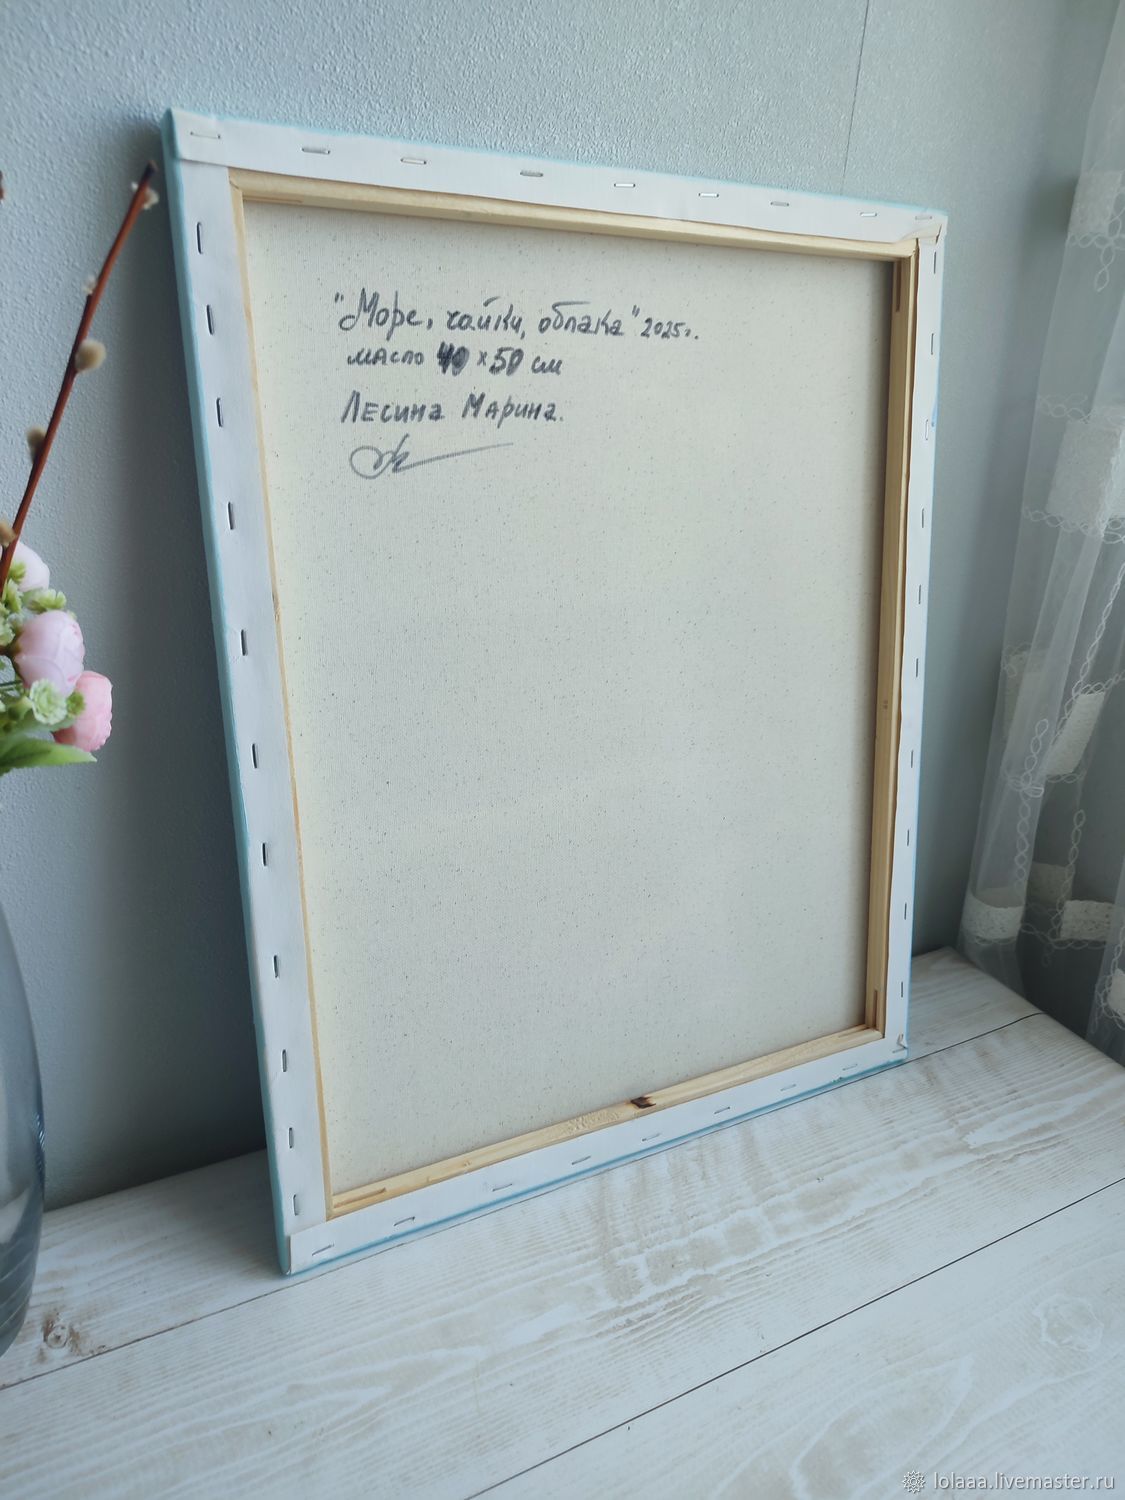 "Море, чайки, облака" 2025г.
масло 40 x 50 см
Лесина Марина.
lolaaa.livemaster.ru